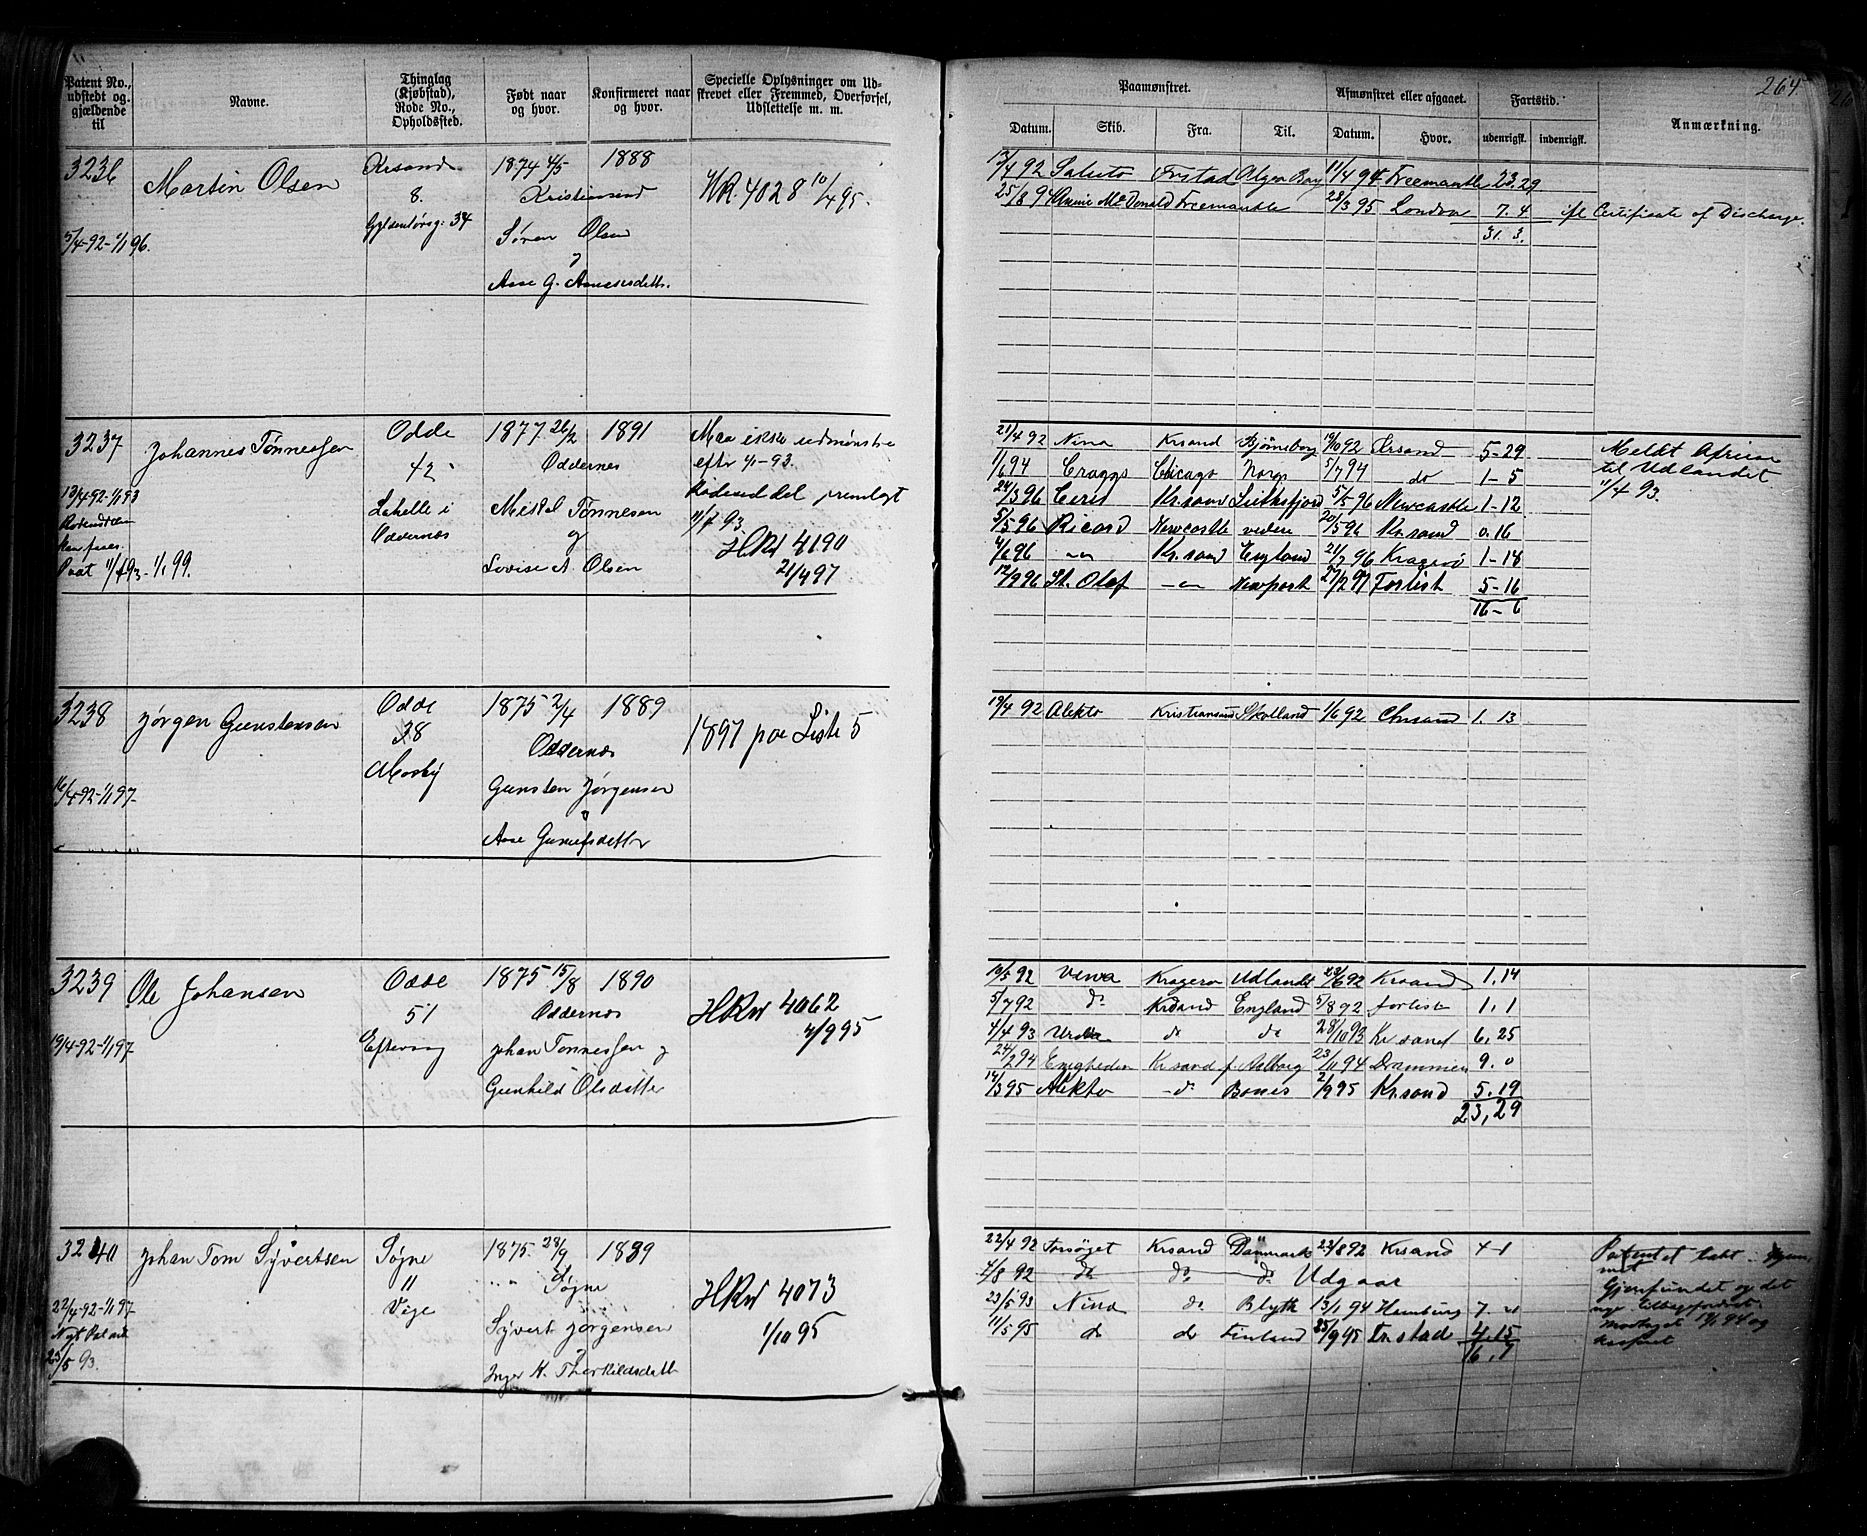 264
Patent No., udstedt og gjældende til
Navne.
Thinglag (Kjøbstad), Rode No., Opholdssted.
Født naar og hvor.
Konfirmeret naar og hvor.
Specielle Oplysninger om Udskrevet eller Fremmed, Overførsel, Udslettelse m. m.
Paamønstret.
Afmønstret eller afgaaet.
Fartstid.
Anmærkning.
Datum. Skib. Fra. Til. Datum. Hvor. udenrigsk. indenrigsk.
3236 Martin Olsen Krsand 1874 4/5 1888
8. Kristianssand HR. 4028 10/4 95.
5/4-92-1/1 96.
Søren Olsen
Aase G.
13/4 92 Saluto Frstad Algoa Bay 11/4 94 Freemantle 23. 29
25/8 94 Annie Mc Donald Freemantle 28/3 95 London 7. 4 ifl Certificate of Discharge.
31. 3.
3237 Johannes Tønnessen Odde 1877 26/2 1891 Maa ikke udmønstre
42 Oddernes efter 1/1-93.
13/4-92-1/1 93
Lahelle i Oddernes
Mikal Tønnesen
og
Lovise A. Olsen
Rodeseddel fremlagt
11/4 93
HRul 4190
21/4 97
11/4 93-1/1 99.
21/4 92 Nina Krsand Bjørneborg 19/10 92 Krsand 5-29
1/6 94 Craggs Chicago Norge 5/7 94 do 1-5
24/3 96 Ceres Kr.sand 5/5 96 Newcastle 1-12
5/5 96 Ricard Newcastle videre 20/5 96 Kr.sand 0.16
4/6 96 -"- Kr.sand England 21/7 96 Kragerø 1-18
12/9 96 St. Olaf -"- Newport 27/2 97 Forlist 5-16
16-6
Meldt Afreise
til Udlandet
11/4 93.
3238 Jørgen Gunstensen Odde 1875 2/4 1889
38 Oddernes 1897 paa Liste 5
Mosby
16/4-92-1/1 97-
Gunsten Jørgensen
Aase
19/4 92 Alekto Kristianssund Skotland 1/6 92 Chrsand 1. 13
3239 Ole Johansen Odde 1875 15/8 1890
51 Oddernes HRul 4062
19/4-92-1/1 97 Eftevaag Johan Tønnessen og
Gunhild Olsdatter
10/5 92 Vinna Kragerø Udlandt 23/6 92 Krsand 1.14
5/7 92 do Krsand England 5/8 92 forlist 1.1
4/4 93 do do 28/10 93 Kr sand 6,25
24/2 94 Enigheden Kr sand f. Aalborg 23/11 94 Drammen 9.0
14/3 95 Alekto -do- Bones 2/9 95 Kr.sand 5.19
23,29
3240 Johan Tom Syvertsen Søgne 1875 28/9 1889
11 Søgne HRul 4073
22/4-92-1/1 97 Vige 1/10 95
25/5 93.
Syvert Jørgensen
Inger K. Therkildsdatt
22/4 92 Forsøget Krsand Danmark 23/8 92 Krsand 4-1
4/8 92 do do do Udgaar
23/5 93 Nina do Blyth 13/1 94 Hamburg 7.
11/5 95 do do Finland 25/9 95 Fr.stad 4.15
16.7
Patentet tabt
Gjenfundet og det
nye tilbagefordret.